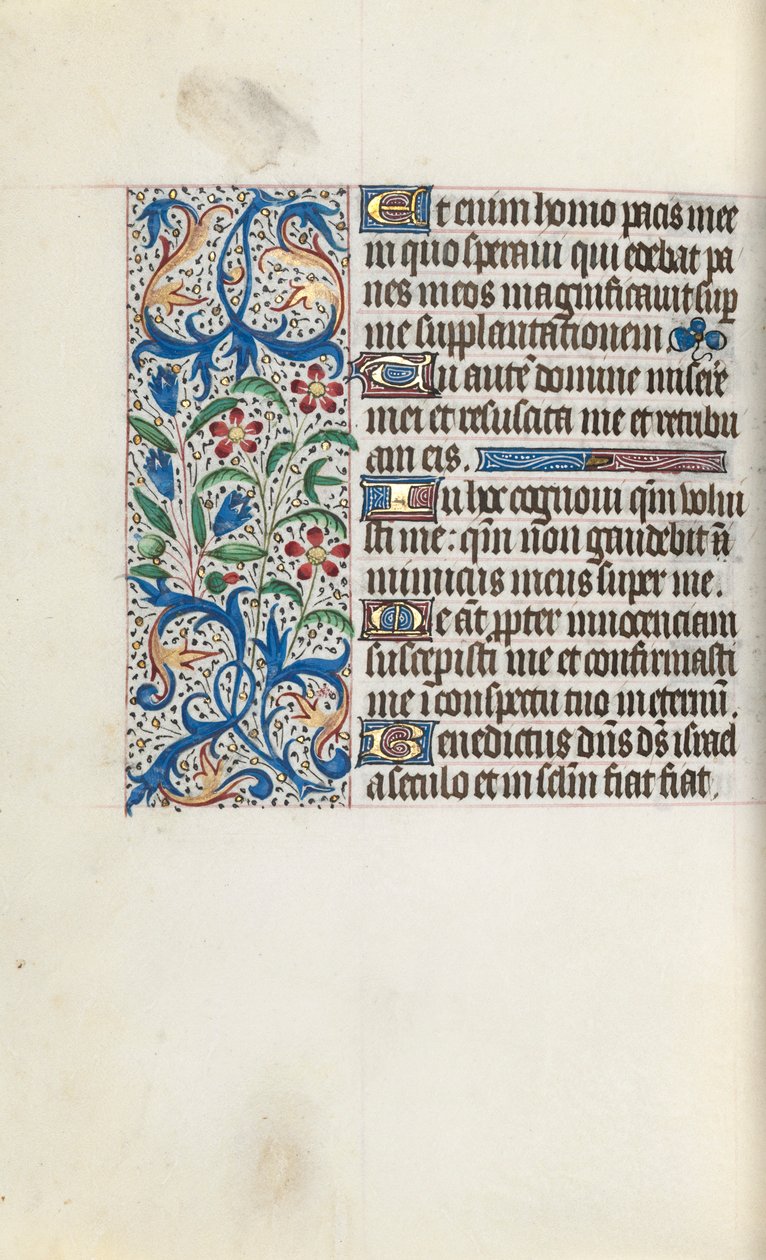 Et enim homo pacis mee
in quo speraui qui edebat pa
nes meos magnificauit sup̱
me supplantationem.
Tu autē domine misere
mei et resuscita me et retribu
am eis.
In hoc cognoui qm̄ volui
sti me: qm̄ non gaudebit ā
inimicus meus super me.
Me āt ꝓpter innocenciam
suscepisti me et confirmasti
me ī conspectu tuo in eternū.
Benedictus dn̄s ds̄ israel
a seculo et in sclm̄ fiat fiat.